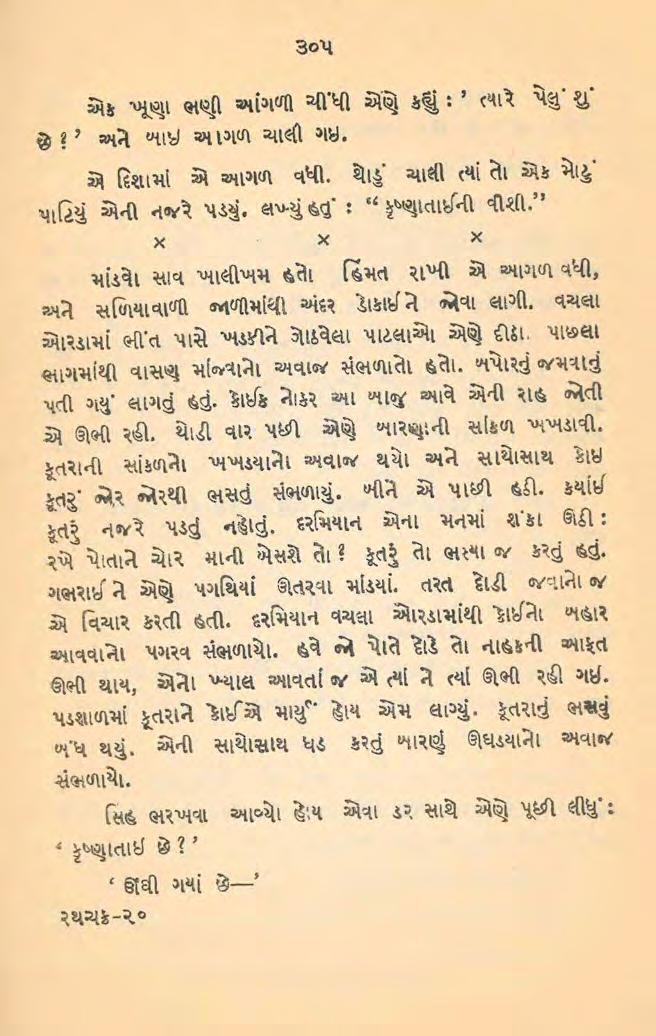 ૩૦૫
એક ખૂણા ભણી આંગળી ચીંધી એણે કહ્યું : ’ ત્યારે પેલું શું
છે ? ’ અને બાઇ આગળ ચાલી ગઇ.
એ દિશામાં એ આગળ વધી. થોડું ચાલી ત્યાં તો એક મોટું
પાટિયું એની નજરે પડયું. લખ્યું હતું : “ કૃષ્ણાતાઈની વીશી.”
× × ×
માંડવો સાવ ખાલીખમ હતો હિંમત રાખી એ આગળ વધી,
અને સળિયાવાળી જાળીમાંથી અંદર ડોકાઈ ને જોવા લાગી. વચલા
ઓરડામાં ભીંત પાસે ખડકીને ગોઠવેલા પાટલાઓ એણે દીઠા. પાછલા
ભાગમાંથી વાસણ માંજવાનો અવાજ સંભળાતો હતો. બપોરનું જમવાનું
પતી ગયું લાગતું હતું. કોઈક નોકર આ બાજુ આવે એની રાહ જોતી
એ ઊભી રહી. થોડી વાર પછી એણે બારણાની સાંકળ ખખડાવી.
કૂતરાની સાંકળનો ખખડયાનો અવાજ થયો અને સાથોસાથ કોઇ
કૂતરું જોર જોરથી ભસતું સંભળાયું. બીને એ પાછી હઠી. કયાંઈ
કૂતરું નજરે પડતું નહોતું. દરમિયાન એના મનમાં શંકા ઊઠી :
રખે પોતાને ચોર માની બેસશે તો ? કૂતરૂં તો ભસ્યા જ કરતું હતું.
ગભરાઈ ને એણે પગથિયાં ઊતરવા માંડયાં. તરત દોડી જવાનો જ
એ વિચાર કરતી હતી. દરમિયાન વચલા ઓરડામાંથી કોઈનો બહાર
આવવાનો પગરવ સંભળાયો. હવે જો પોતે દોડે તો નાહકની આફત
ઊભી થાય, એનો ખ્યાલ આવતાં જ એ ત્યાં ને ત્યાં ઊભી રહી ગઇ.
પડશાળમાં કૂતરાને કોઈએ માર્યું હોય એમ લાગ્યું. કૂતરાનું ભસવું
બંધ થયું. એની સાથોસાથ ધડ કરતું બારણું ઊઘડયાનો અવાજ
સંભળાયો.
સિંહ ભરખવા આવ્યો હોય એવા ડર સાથે એણે પૂછી લીધું :
‘ કૃષ્ણાતાઇ છે ? ’
‘ ઊંઘી ગયાં છે—’
રથચક્ર-૨૦